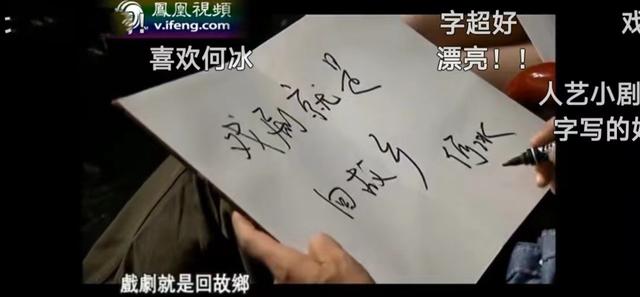 鳳凰視頻
v.ifeng.com
字超好
戏
喜欢何冰
漂亮！！
人艺小剧
字写的好
戏剧就是
回故乡
何冰
戲劇就是回故鄉